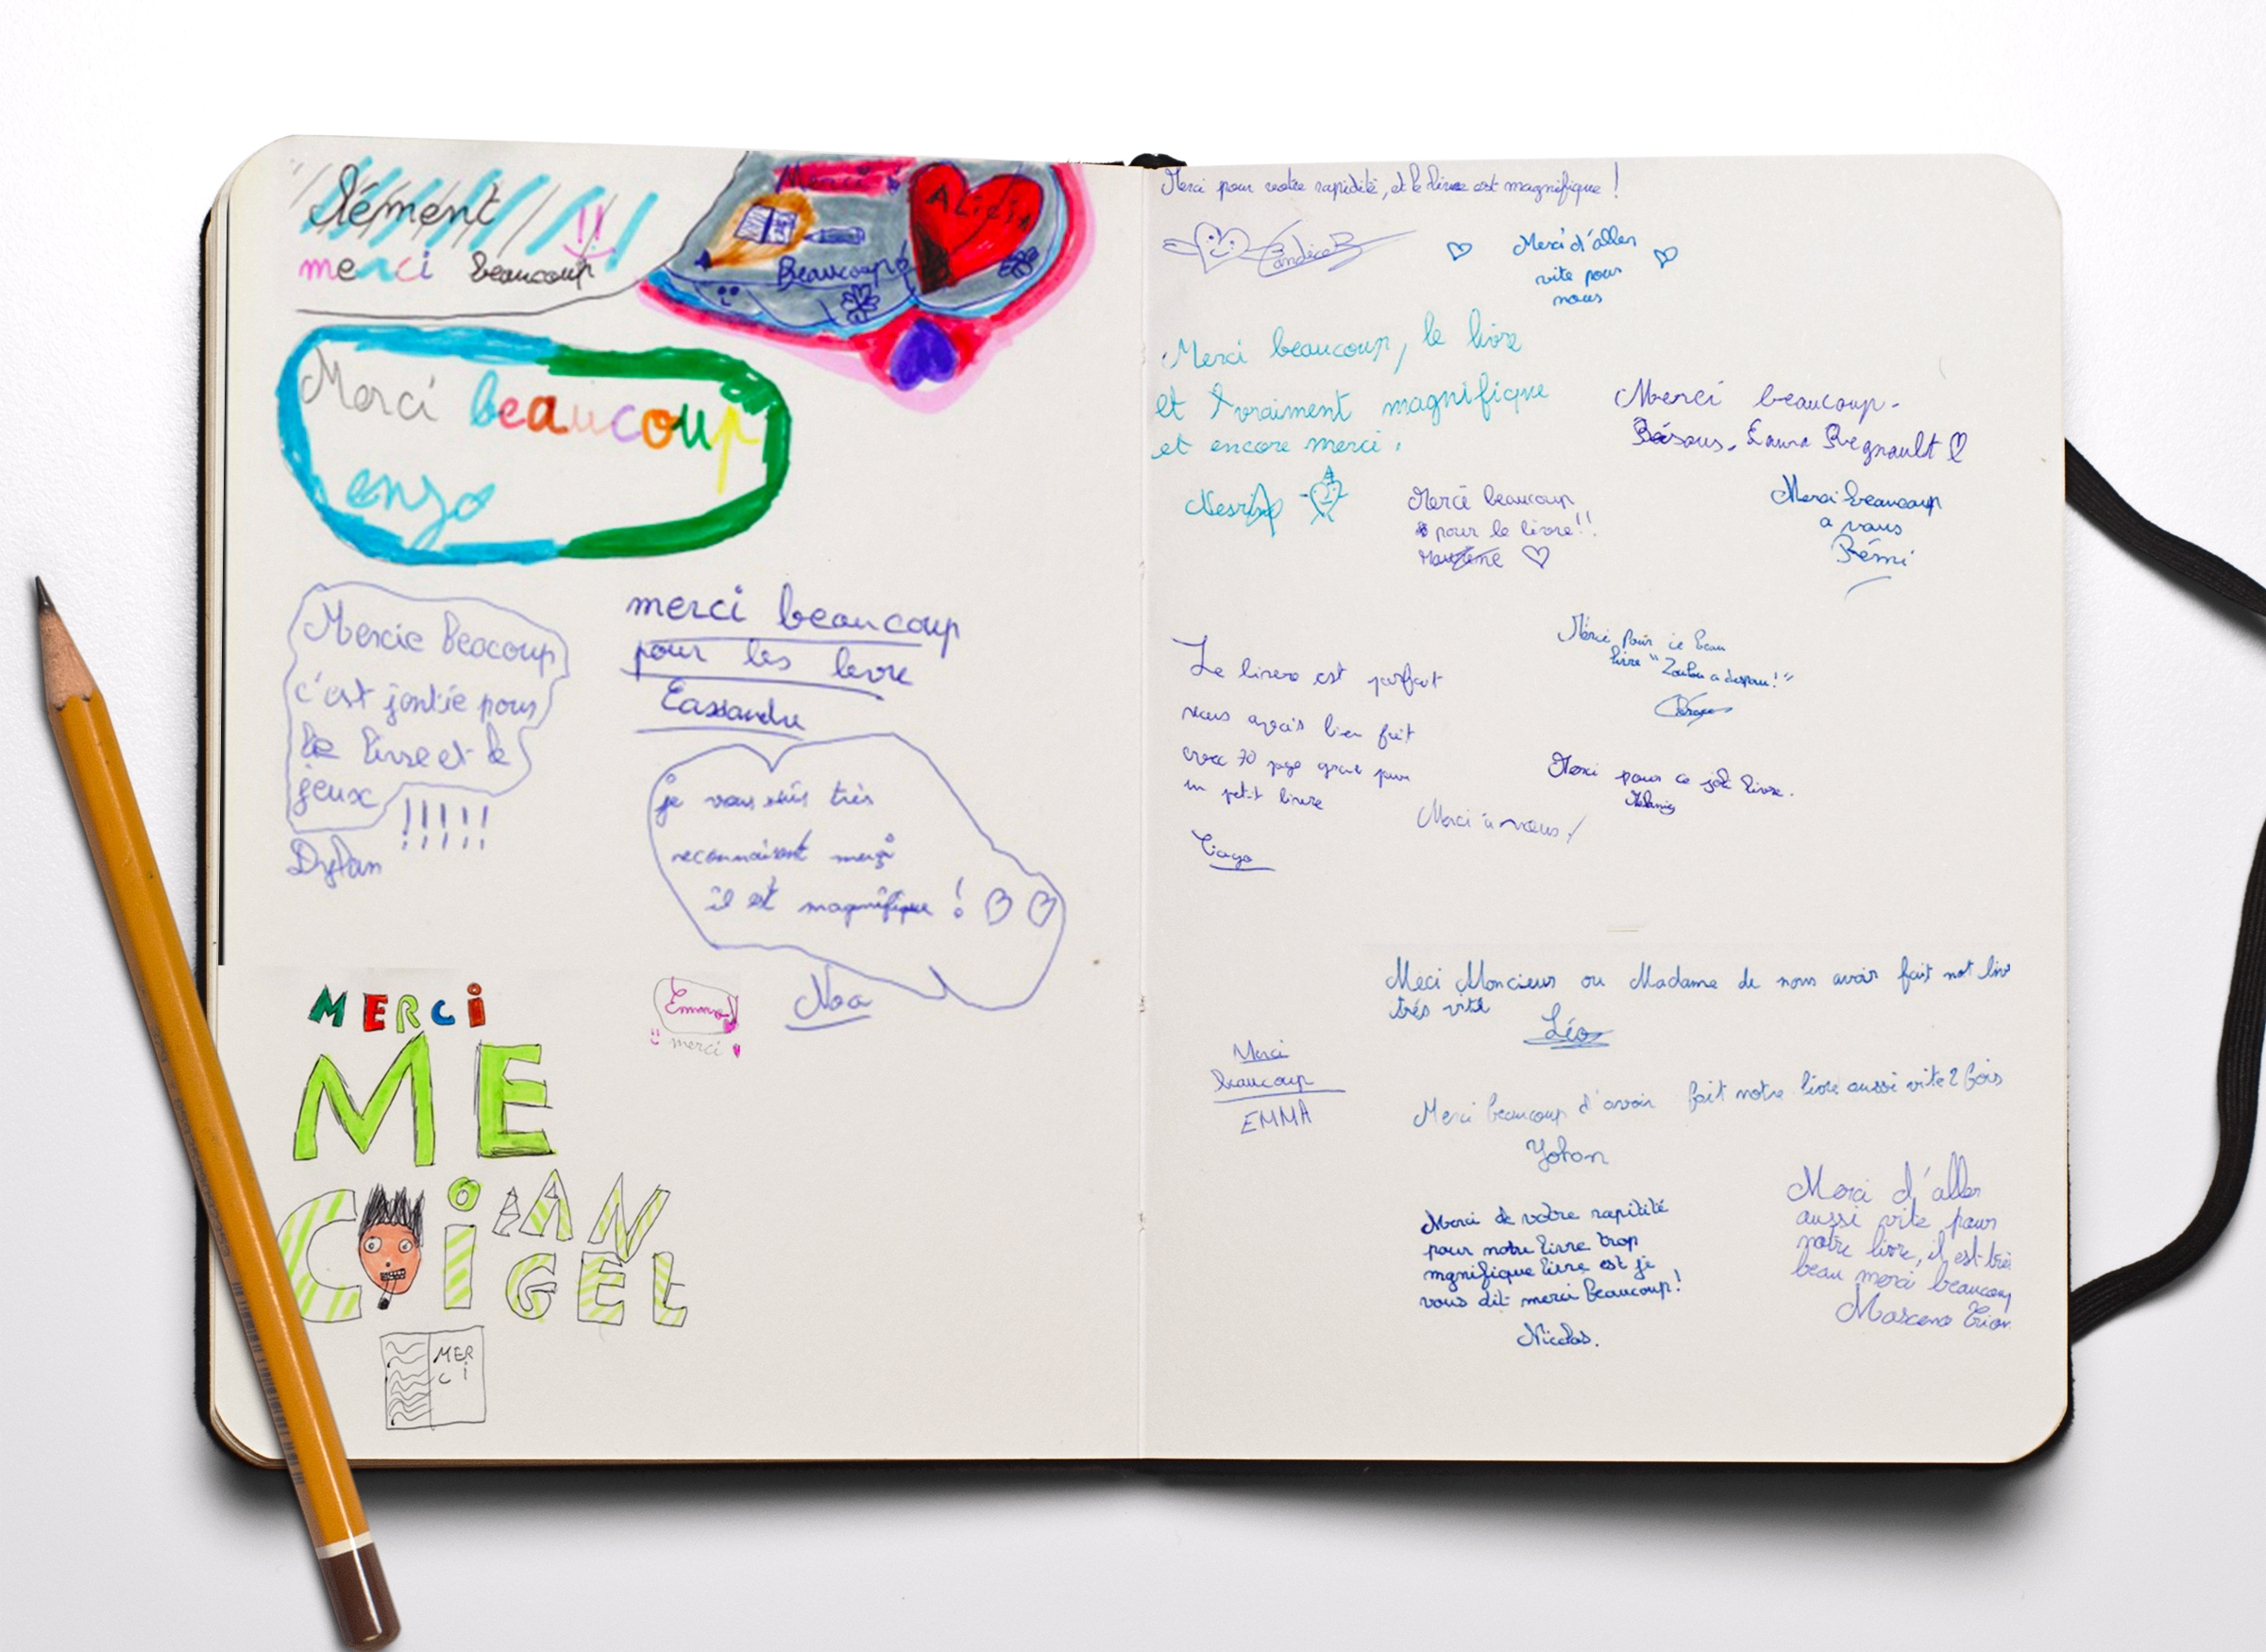 Clément
merci beaucoup
!!
Merci
Alicia
Beaucoup!
Merci beaucoup
enzo
Mercie Beacoup
c'est jontie pour
le livre et le
jeux !!!!!
Dylan
merci beaucoup
pour les levre
Cassandre
je vous suis très
reconnaisent merci
il est magnifique !
Noa
MERCI
Emma
merci
ME
Ci
AN
GEL
MER
Ci
Merci pour votre rapidité, et le livre est magnifique !
Candice B
Merci d'aller
vite pour
nous
Merci beaucoup, le livre
et vraiment magnifique
et encore merci.
Nesrine
Merci beaucoup.
Bisous. Laura Regnault
Merci beaucoup
pour le livre!!
Merci beaucoup
a vous
Rémi
Merci pour ce beau
livre "Zoulou a disparu!"
Le livre est parfait
vous avais bien fait
avec 70 page grave pour
un petit livre
Tiago
Merci pour ce joli livre.
Mélanie
Merci à vous!
Meci Moncieur ou Madame de nous avoir fait not livr
trés vite
Léo
Merci
beaucoup
EMMA
Merci beaucoup d'avoir fait notre livre aussi vite 2 fois
Yohan
Merci de votre rapitité
pour notre livre trop
mgnifique livre est je
vous dit merci beaucoup!
Nicolas.
Merci d'aller
aussi vite pour
notre livre, il est trè
beau merci beaucoup